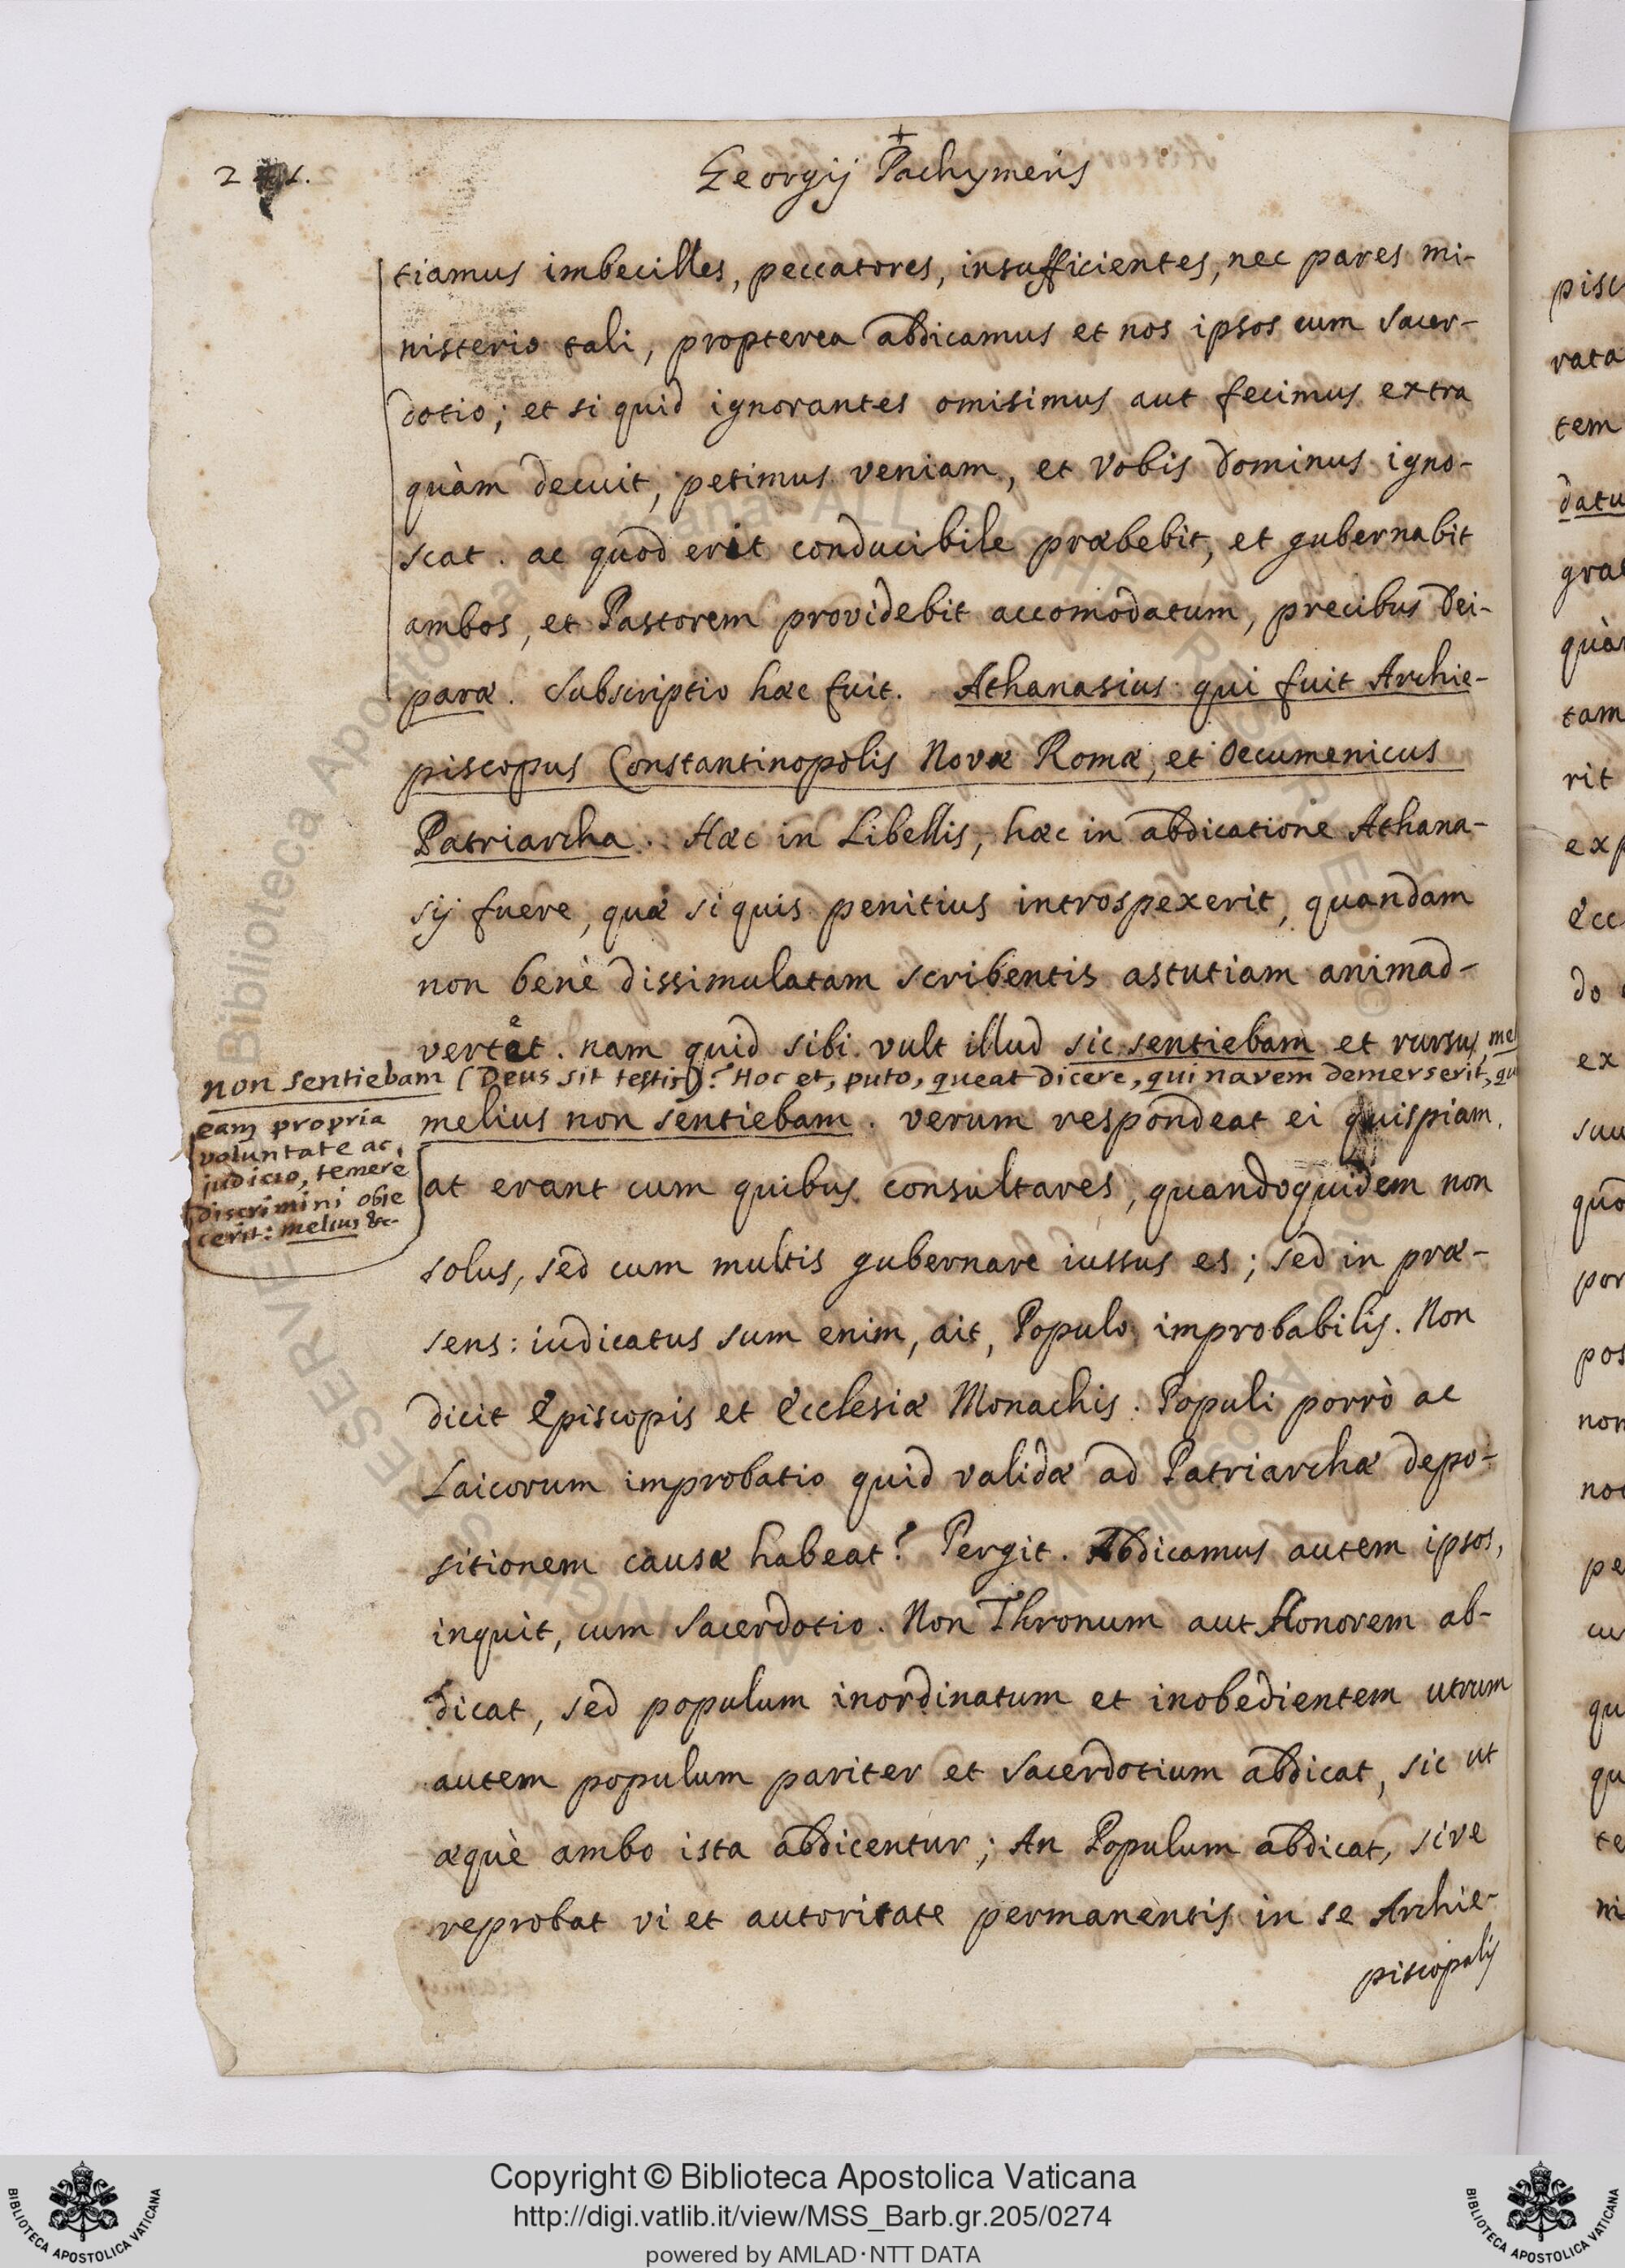 Georgij Pachymeris
tiamus imbecilles, peccatores, insufficientes, nec pares mi-
nisterio tali, propterea abdicamus et nos ipsos cum sacer-
dotio; et si quid ignorantes omisimus aut fecimus extra
quàm decuit, petimus veniam, et vobis Dominus igno-
scat. ac quod erit conducibile præbebit, et gubernabit
ambos, et Pastorem providebit accomodatum, precibus Dei-
paræ. Subscriptio hæc fuit. Athanasius qui fuit Archie-
piscopus Constantinopolis Novæ Romæ, et Oecumenicus
Patriarcha. Hæc in Libellis, hæc in abdicatione Athana-
sij fuere, quæ si quis penitius introspexerit, quandam
non benè dissimulatam scribentis astutiam animad-
vertet. nam quid sibi vult illud sic sentiebam et rursus, mel
non sentiebam (Deus sit testis)? Hoc et, puto, queat dicere, qui navem demerserit, qu
eam propria
voluntate ac
judicio, temere
discrimini obie
cerit: melius &c-
melius non sentiebam. verum respondeat ei quispiam.
at erant cum quibus consultares, quandoquidem non
solus, sed cum multis gubernare iussus es; sed in præ-
sens: iudicatus sum enim, ait, Populo improbabilis. Non
dicit Episcopis et Ecclesiæ Monachis. Populi porrò ac
Laicorum improbatio quid validæ ad Patriarchæ depo-
sitionem causæ habeat? Pergit. Abdicamus autem ipsos,
inquit, cum sacerdotio. Non Thronum aut Honorem ab-
dicat, sed populum inordinatum et inobedientem utrum
autem populum pariter et sacerdotium abdicat, sic ut
æquè ambo ista abdicentur; An Populum abdicat, sive
reprobat vi et autoritate permanentis in se Archie-
piscopalis
pisc
rata
tem
datu
gra
quà
tam
rit
exp
Ecc
do
ex
suu
quo
por
pos
non
no
pe
cu
qu
qu
te
ni
Copyright © Biblioteca Apostolica Vaticana
http://digi.vatlib.it/view/MSS_Barb.gr.205/0274
powered by AMLAD·NTT DATA
BIBLIOTECA APOSTOLICA VATICANA
BIBLIOTECA APOSTOLICA VATICANA